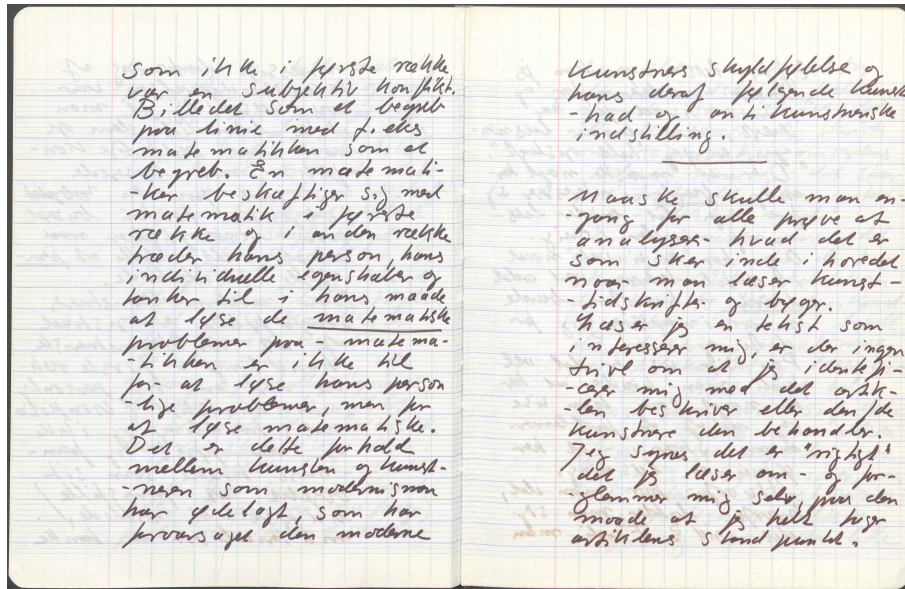 som ikke i første række
var en subjektiv konflikt.
Billedet som et begreb
paa linie med f.eks
matematikken som et
begreb. En matemati-
-ker beskæftiger sig med
matematik i første
række og i anden række
træder hans person, hans
individuelle egenskaber og
tanker til i hans maade
at løse de matematiske
problemer paa - matema-
-tikken er ikke til
for at løse hans person
-lige problemer, men for
at løse matematiske.
Det er dette forhold
mellem kunsten og kunst-
-neren som modernismen
har ødelagt, som har
foraarsaget den moderne
kunstners skyldfølelse og
hans deraf følgende kunst
-had og antikunstneriske
indstilling.
Maaske skulle man en-
-gang for alle prøve at
analysere hvad det er
som sker inde i hovedet
naar man læser kunst-
-tidskrifter og bøger.
Læser jeg en tekst som
interesserer mig, er der ingen
tvivl om at jeg identifi-
-cerer mig med det artik-
-len beskriver eller den/de
kunstnere den behandler.
Jeg synes det er "rigtigt"
det jeg læser om - og for-
-glemmer mig selv, paa den
maade at jeg helt tager
artiklens standpunkt.